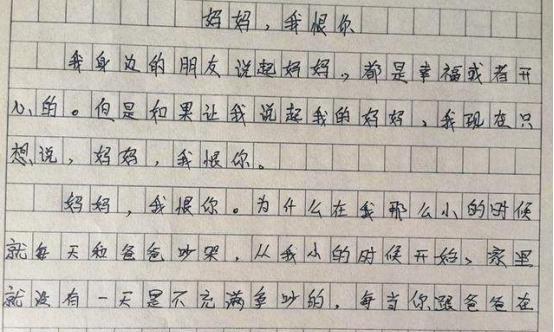 妈妈，我恨你
我身边的朋友说起妈妈，都是幸福或者开
心的。但是如果让我说起我的妈妈、我现在只
想说，妈妈，我恨你。
妈妈，我恨你。为什么在我那么小的时候
就每天和爸爸吵架，从我小的时候开始、家里
就没有一天是不充满争吵的，每当你跟爸爸在